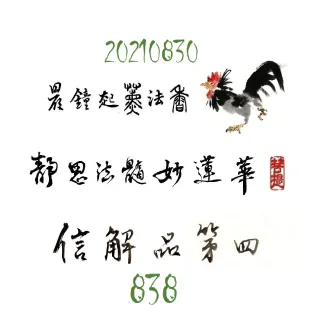 20210830
晨鐘起薰法香
靜思法髓妙蓮華
信解品第四
838